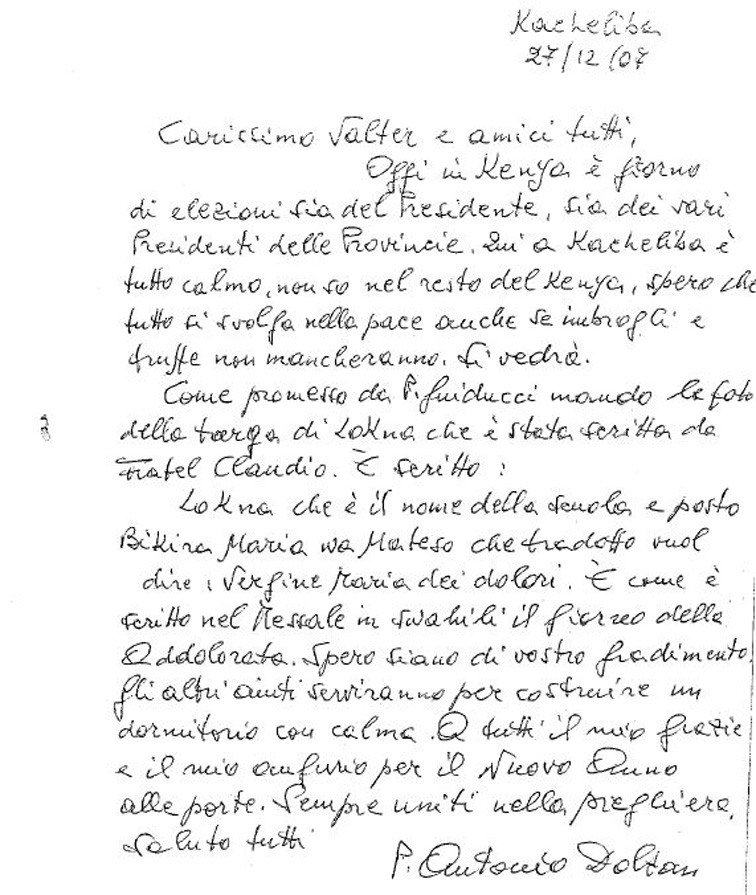 Kacheliba
27/12/07
Carissimo Valter e amici tutti,
Oggi in Kenya è giorno
di elezioni sia del Presidente, sia dei vari
Presidenti delle Provincie. Qui a Kacheliba è
tutto calmo, non so nel resto del Kenya, spero che
tutto si svolga nella pace anche se imbrogli e
truffe non mancheranno. Si vedrà.
Come promesso da P. Guiducci mando le foto
della targa di Lokna che è stata scritta da
Fratel Claudio. È scritto :
Lokna che è il nome della scuola e posto
Bikira Maria wa Mateso che tradotto vuol
dire : Vergine Maria dei dolori. È come è
scritto nel Messale in swahili il giorno della
Addolorata. Spero siano di vostro gradimento,
gli altri aiuti serviranno per costruire un
dormitorio con calma. A tutti il mio grazie
e il mio augurio per il Nuovo Anno
alle porte. Sempre uniti nella preghiera,
saluto tutti
P. Antonio